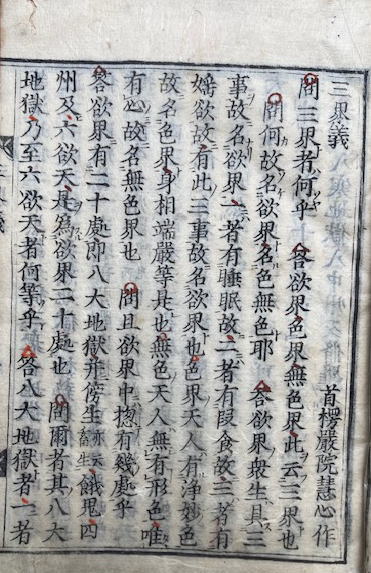 三界義
首楞嚴院慧心作
問三界者何乎 答欲界色界無色界此云三界也
問何故名欲界色無色耶 答欲界衆生具三
事故名欲界一者有睡眠故二者有段食故三者有
婬欲故有此三事故名欲界也色界天人有浄妙色
故名色界身相端嚴等是也無色天人無有形色唯
有心故名無色界也 問且欲界中揔有幾處乎
答欲界有二十處即八大地獄并傍生亦云畜生餓鬼四
州及六欲天是爲欲界二十處也 問爾者其八大
地獄乃至六欲天者何等乎 答八大地獄者一者